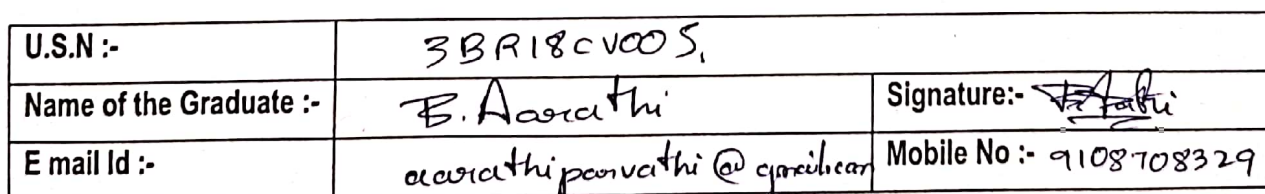 U.S.N :- 3BR18CV005.
Name of the Graduate :- B. Aarathi Signature:-
E mail Id :- aarathiparvathi@gmail.com Mobile No :- 9108708329